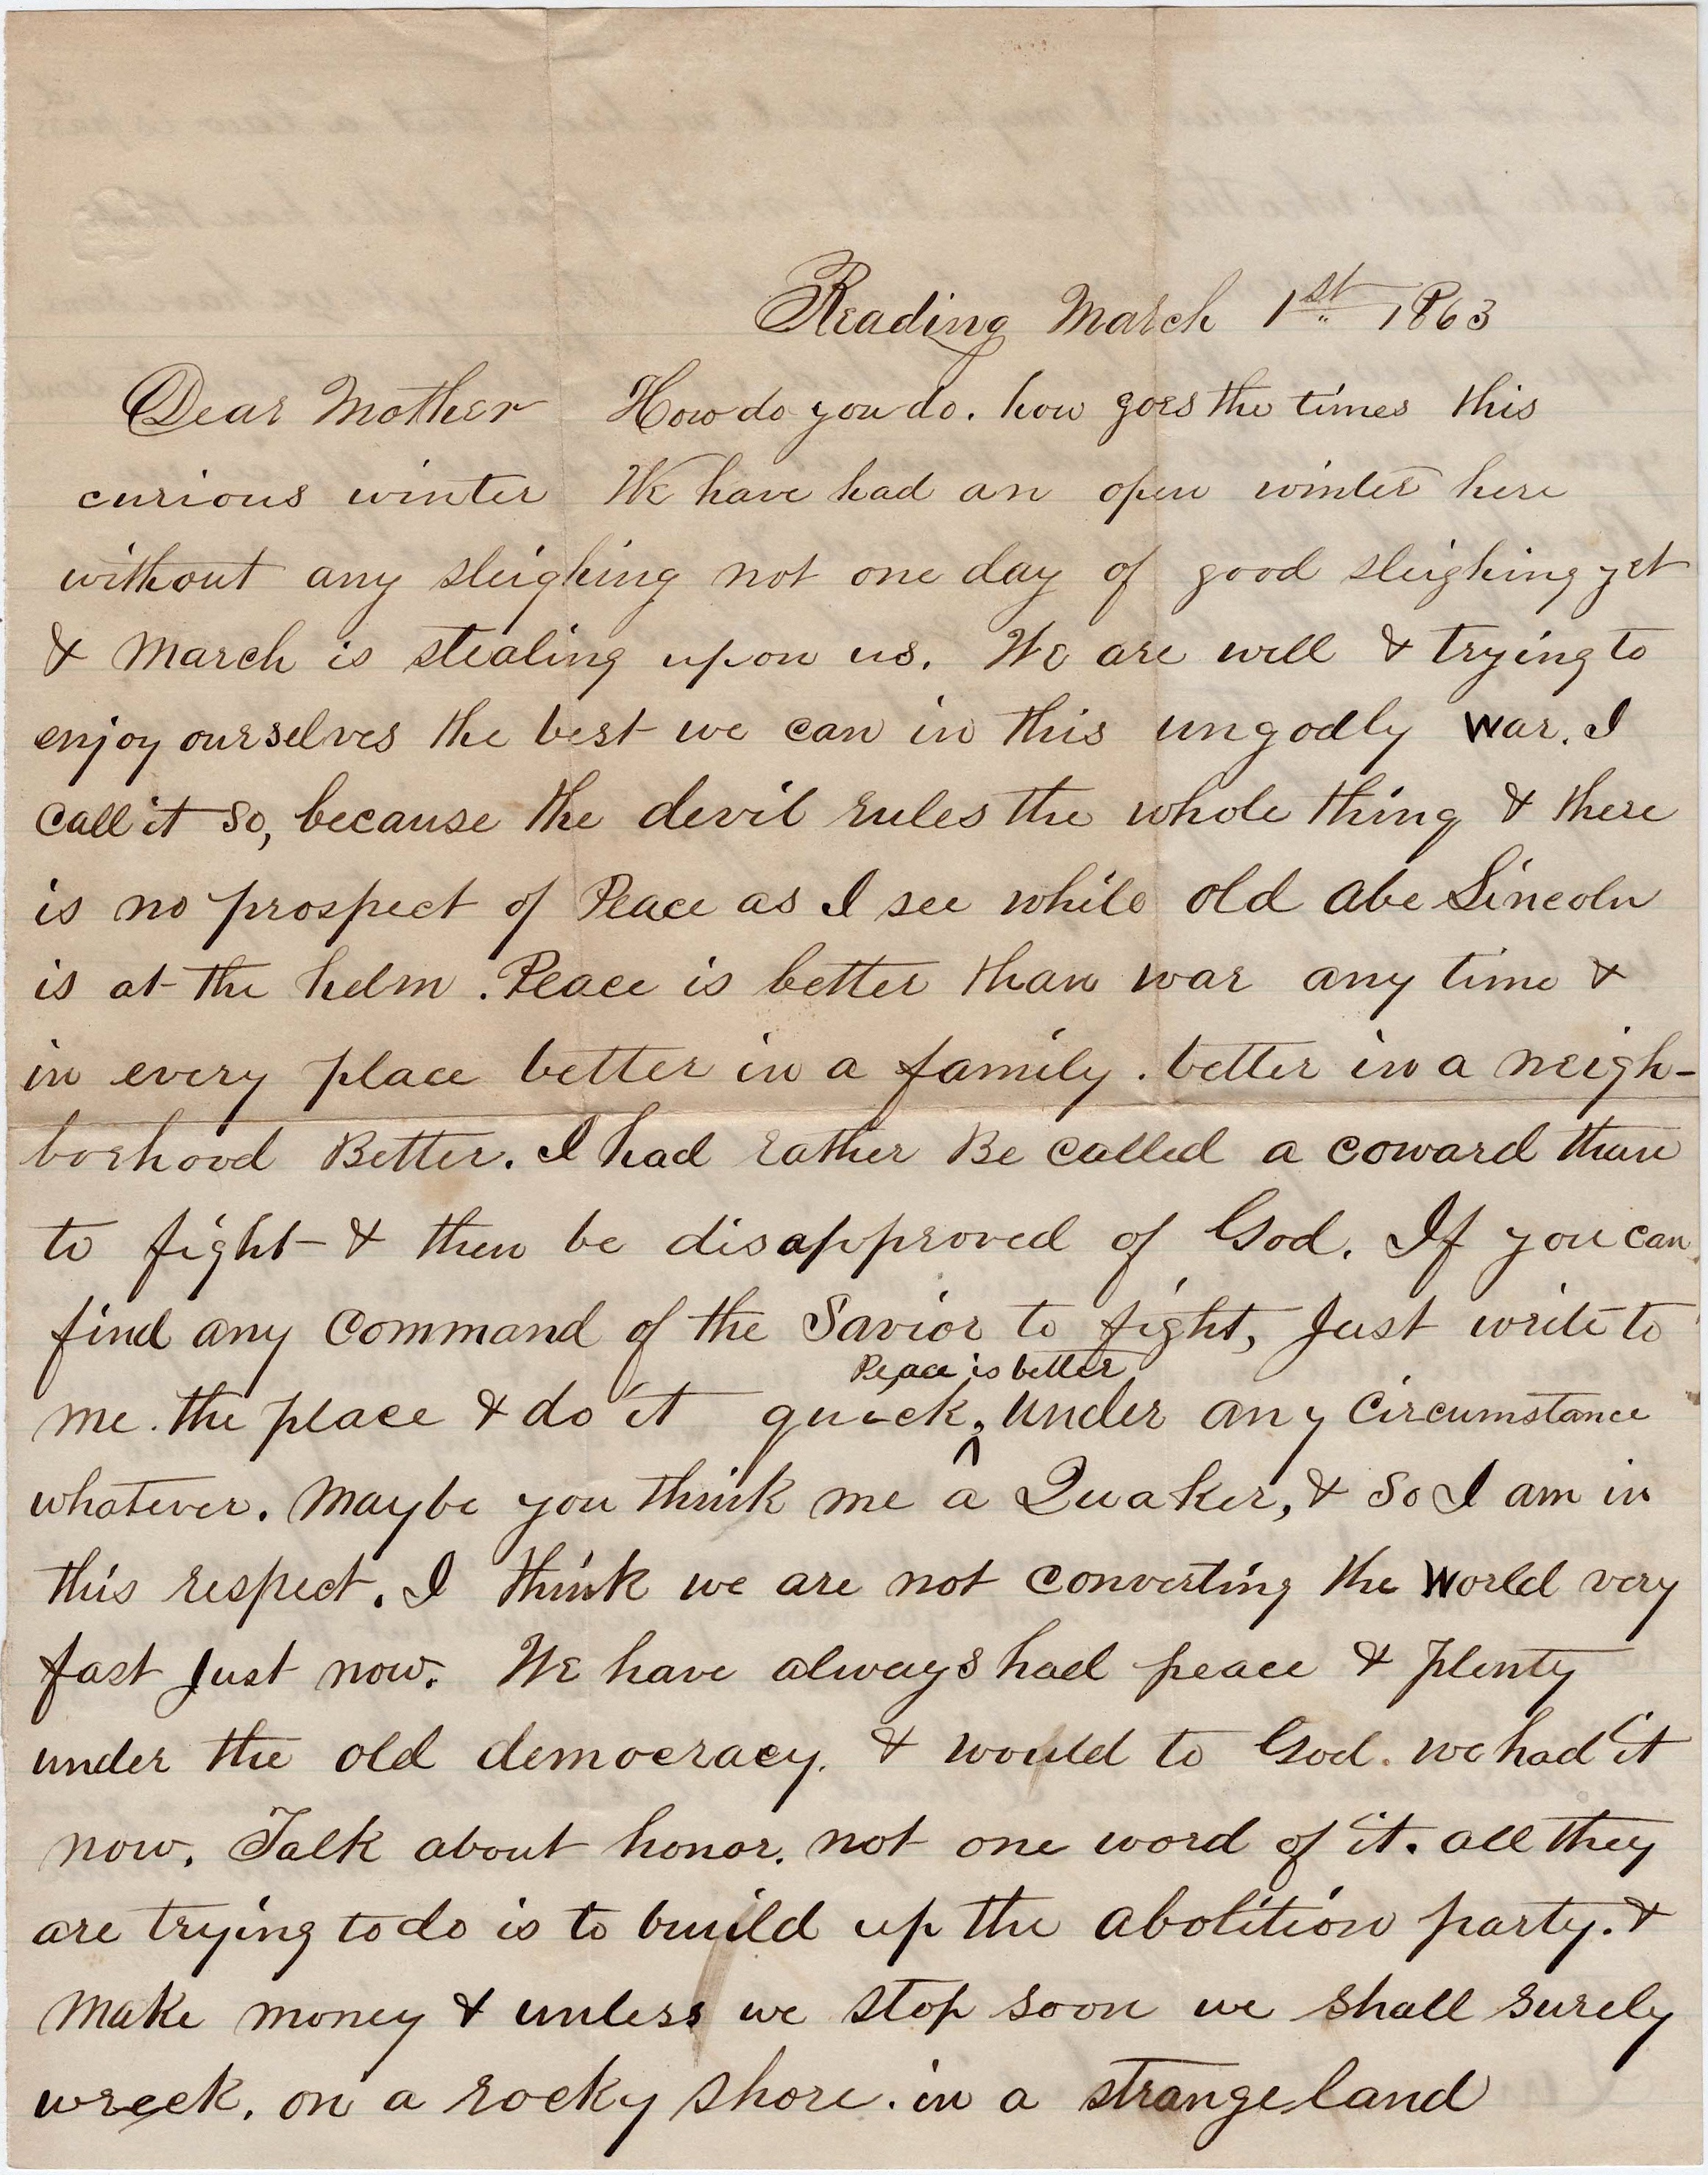 Reading March 1st 1863
Dear Mother How do you do. how goes the times this
curious winter We have had an open winter here
without any sleighing not one day of good sleighing yet
& March is stealing upon us. We are well & trying to
enjoy ourselves the best we can in this ungodly war. I
call it so, because the devil rules the whole thing & there
is no prospect of Peace as I see while old abe Lincoln
is at the helm. Peace is better than war any time &
in every place better in a family. better in a neigh-
borhood Better. I had rather Be called a coward than
to fight & then be disapproved of God. If you can
find any command of the Savior to fight, Just write to
Peace is better
me. the place & do it quick, ^ under any circumstance
whatever. Maybe you think me a Quaker, & so I am in
this respect. I think we are not converting the world very
fast Just now. We have always had peace & plenty
under the old democracy. & would to God. we had it
now. Talk about honor. not one word of it. all they
are trying to do is to build up the abolition party. &
make money & unless we stop soon we shall surely
wreck. on a rocky shore. in a strange land